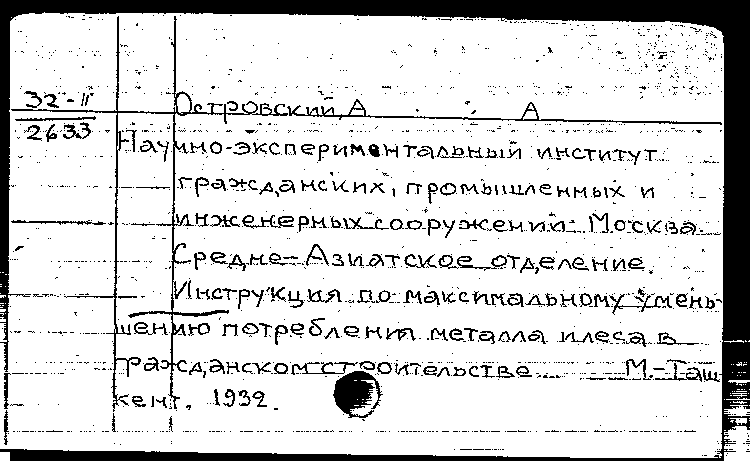 32-II
2633
Островский, А А
Научно-экспериментальный институт
гражданских, промышленных и
инженерных сооружений. Москва.
Средне-Азиатское отделение.
Инструкция по максимальному умень-
шению потребления металла и леса в
гражданском строительстве... М.-Таш-
кент, 1932.